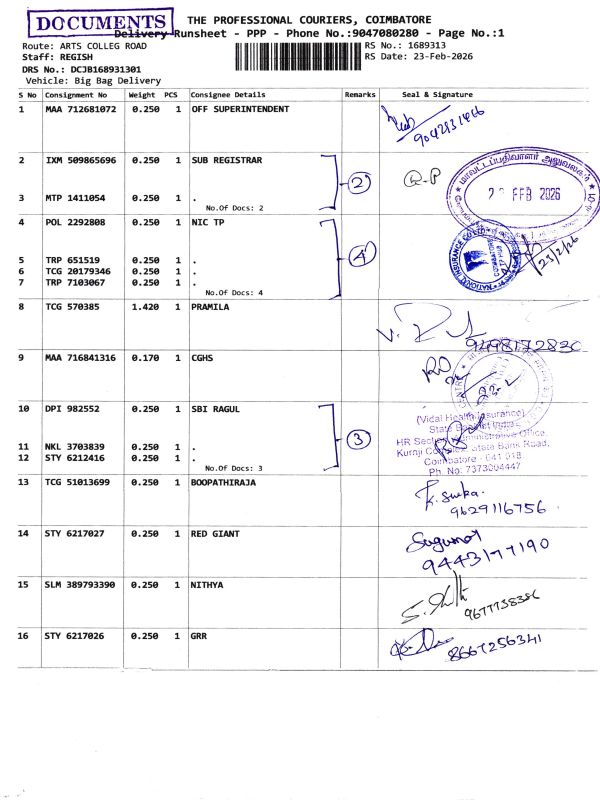 DOCUMENTS
THE PROFESSIONAL COURIERS, COIMBATORE
Delivery Runsheet - PPP - Phone No.:9047080280 - Page No.:1
Route: ARTS COLLEG ROAD
RS No.: 1689313
Staff: REGISH
RS Date: 23-Feb-2026
DRS No.: DCJB168931301
Vehicle: Big Bag Delivery
S No Consignment No Weight PCS Consignee Details Remarks Seal & Signature
1 MAA 712681072 0.250 1 OFF SUPERINTENDENT
9042931466
2 IXM 509865696 0.250 1 SUB REGISTRAR
2
மாவட்டப்பதிவாளர் அலுவலகம்
FEB 2026
3 MTP 1411054 0.250 1 .
No.Of Docs: 2
4 POL 2292808 0.250 1 NIC TP
4
23/2/26
5 TRP 651519 0.250 1 .
6 TCG 20179346 0.250 1 .
7 TRP 7103067 0.250 1 .
No.Of Docs: 4
8 TCG 570385 1.420 1 PRAMILA
9498172830
9 MAA 716841316 0.170 1 CGHS
10 DPI 982552 0.250 1 SBI RAGUL
3
(Vidal Health Insurance)
State Bank of India
HR Section, Administrative Office,
Kurnji Complex, State Bank Road,
Coimbatore - 641 018
Ph. No: 7373004447
11 NKL 3703839 0.250 1 .
12 STY 6212416 0.250 1 .
No.Of Docs: 3
13 TCG 51013699 0.250 1 BOOPATHIRAJA
9629116756
14 STY 6217027 0.250 1 RED GIANT
9443177190
15 SLM 389793390 0.250 1 NITHYA
9677738386
16 STY 6217026 0.250 1 GRR
8667256341